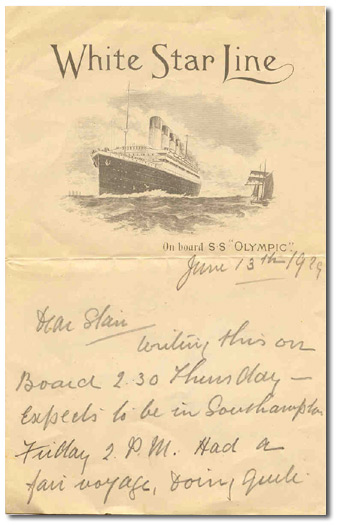 White Star Line
On board S.S. "OLYMPIC".
June 13th 1929
Dear Stan
Writing this on
Board 2.30 Thursday –
Expects to be in Southampton
Friday 2. P.M. Had a
fair voyage, Doing